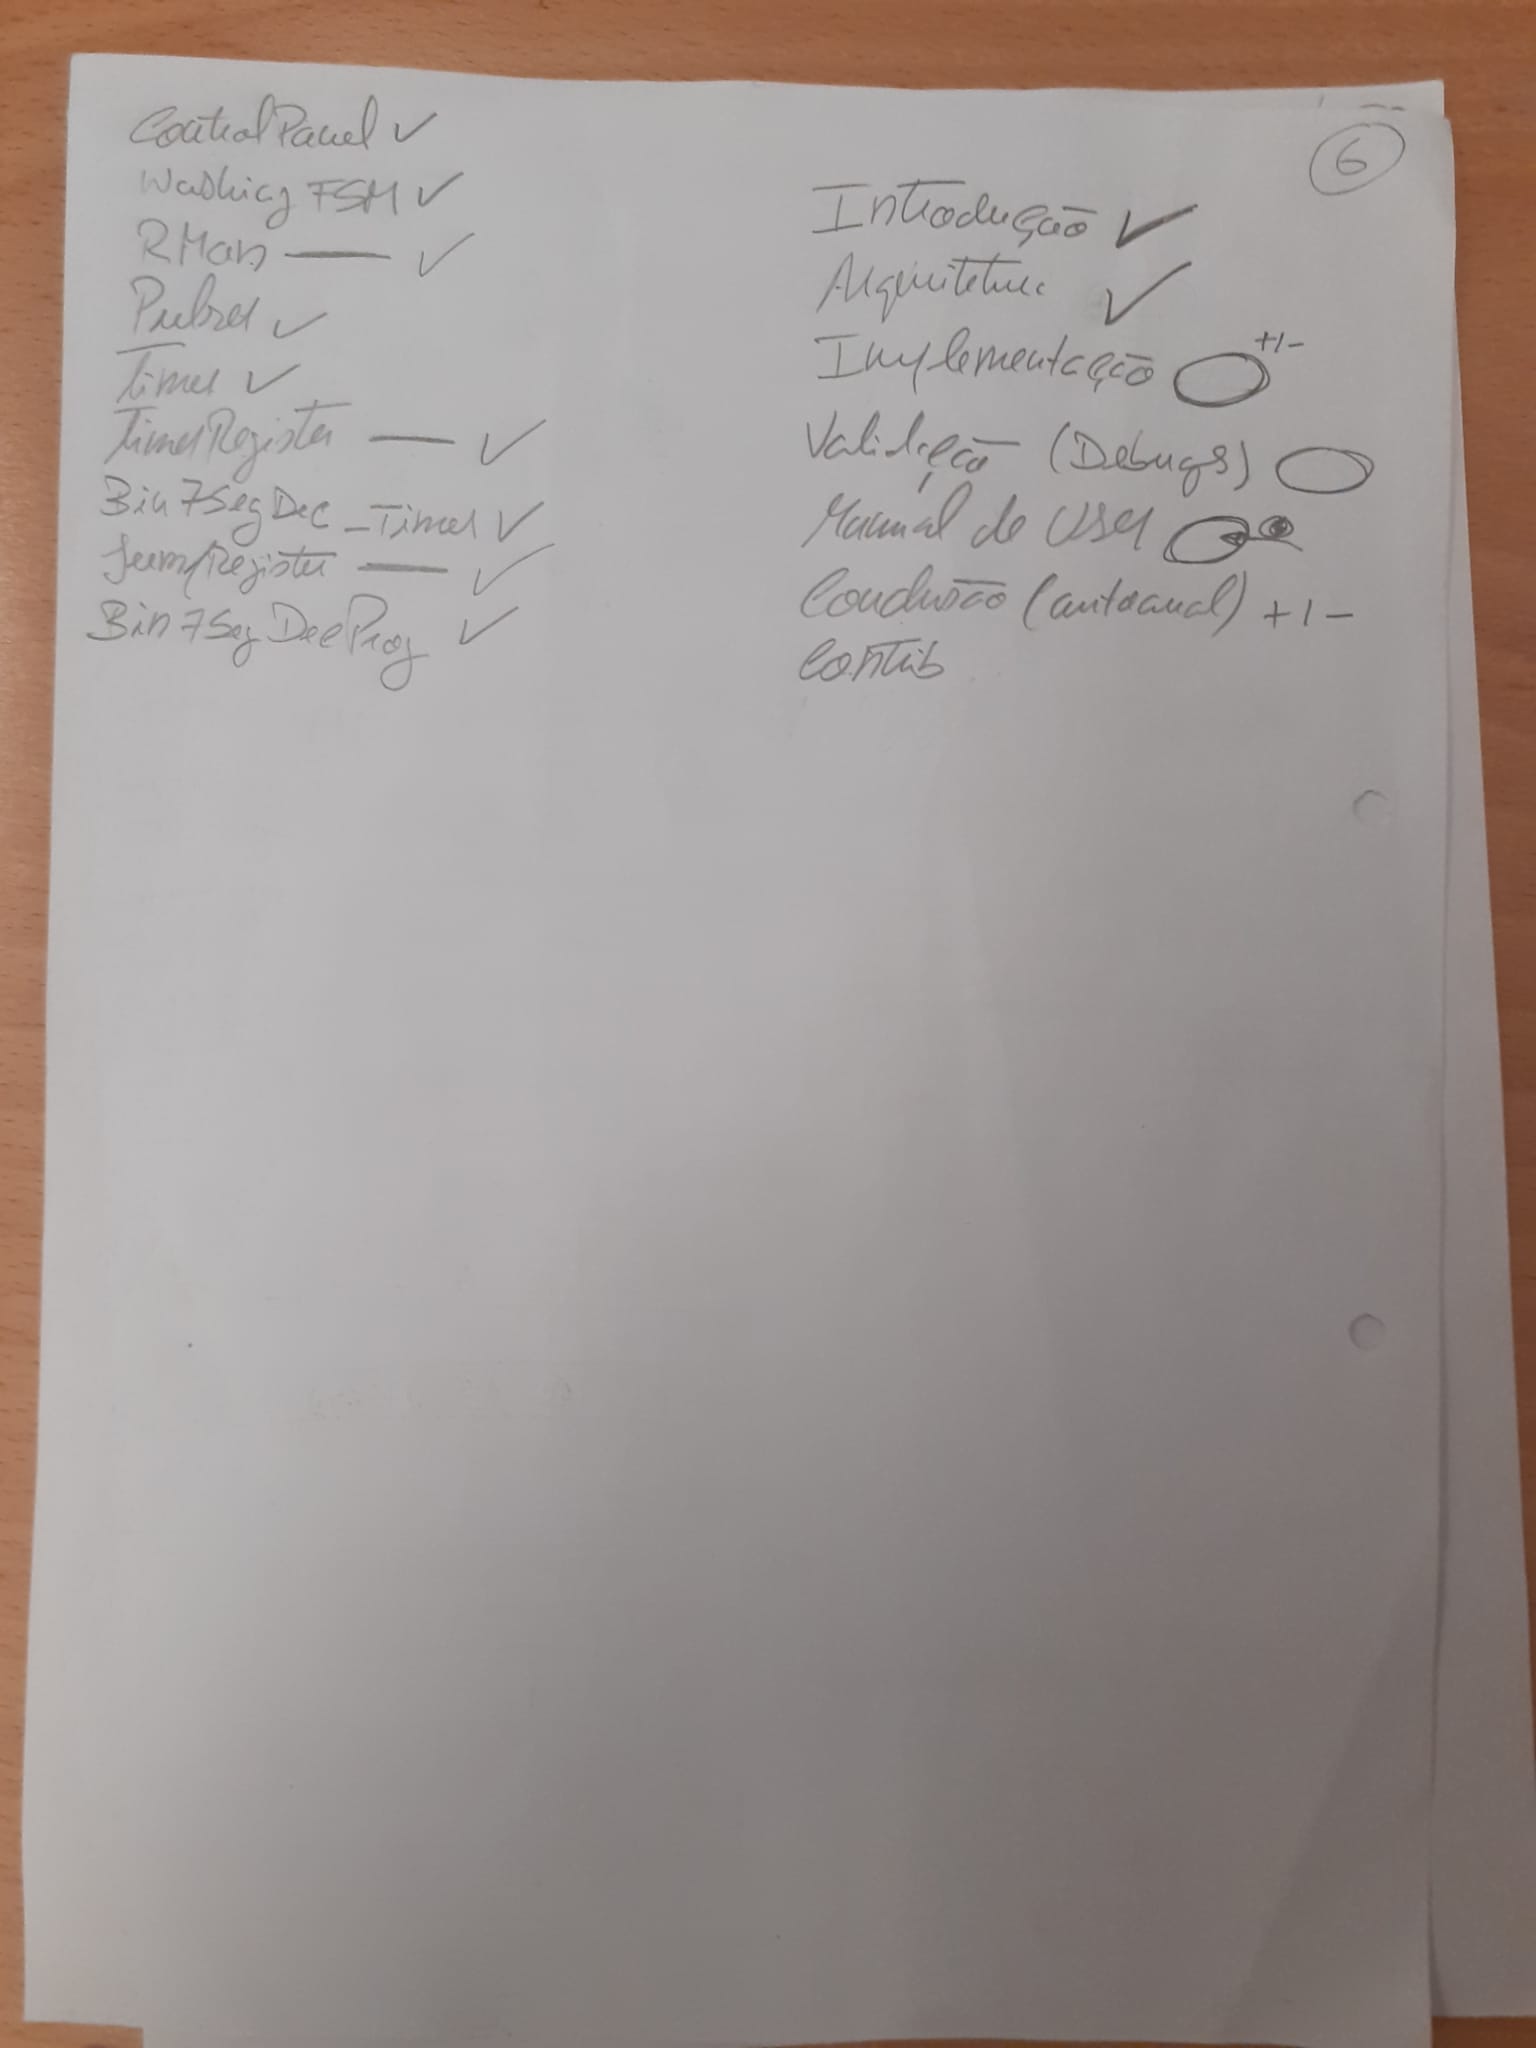 ControlPanel ✓
Washing FSM ✓
RMan — ✓
✓
Timer ✓
TimerRegister — ✓
Bin7SegDec_Timer ✓
Register — ✓
Bin7SegDecProg ✓
6
Introdução ✓
Arquitetura ✓
Implementação +/-
Validação (Debugs)
Manual de User
Conclusão (autoaval) +/-
Contrib